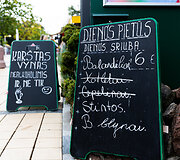 KARŠTAS
VYNAS
NEALKOHOLINIS
IR NE TIK
DIENOS PIETŪS
DIENOS SRIUBA
Balandėliai 6
Kotletai
Cepelinai
B. blynai